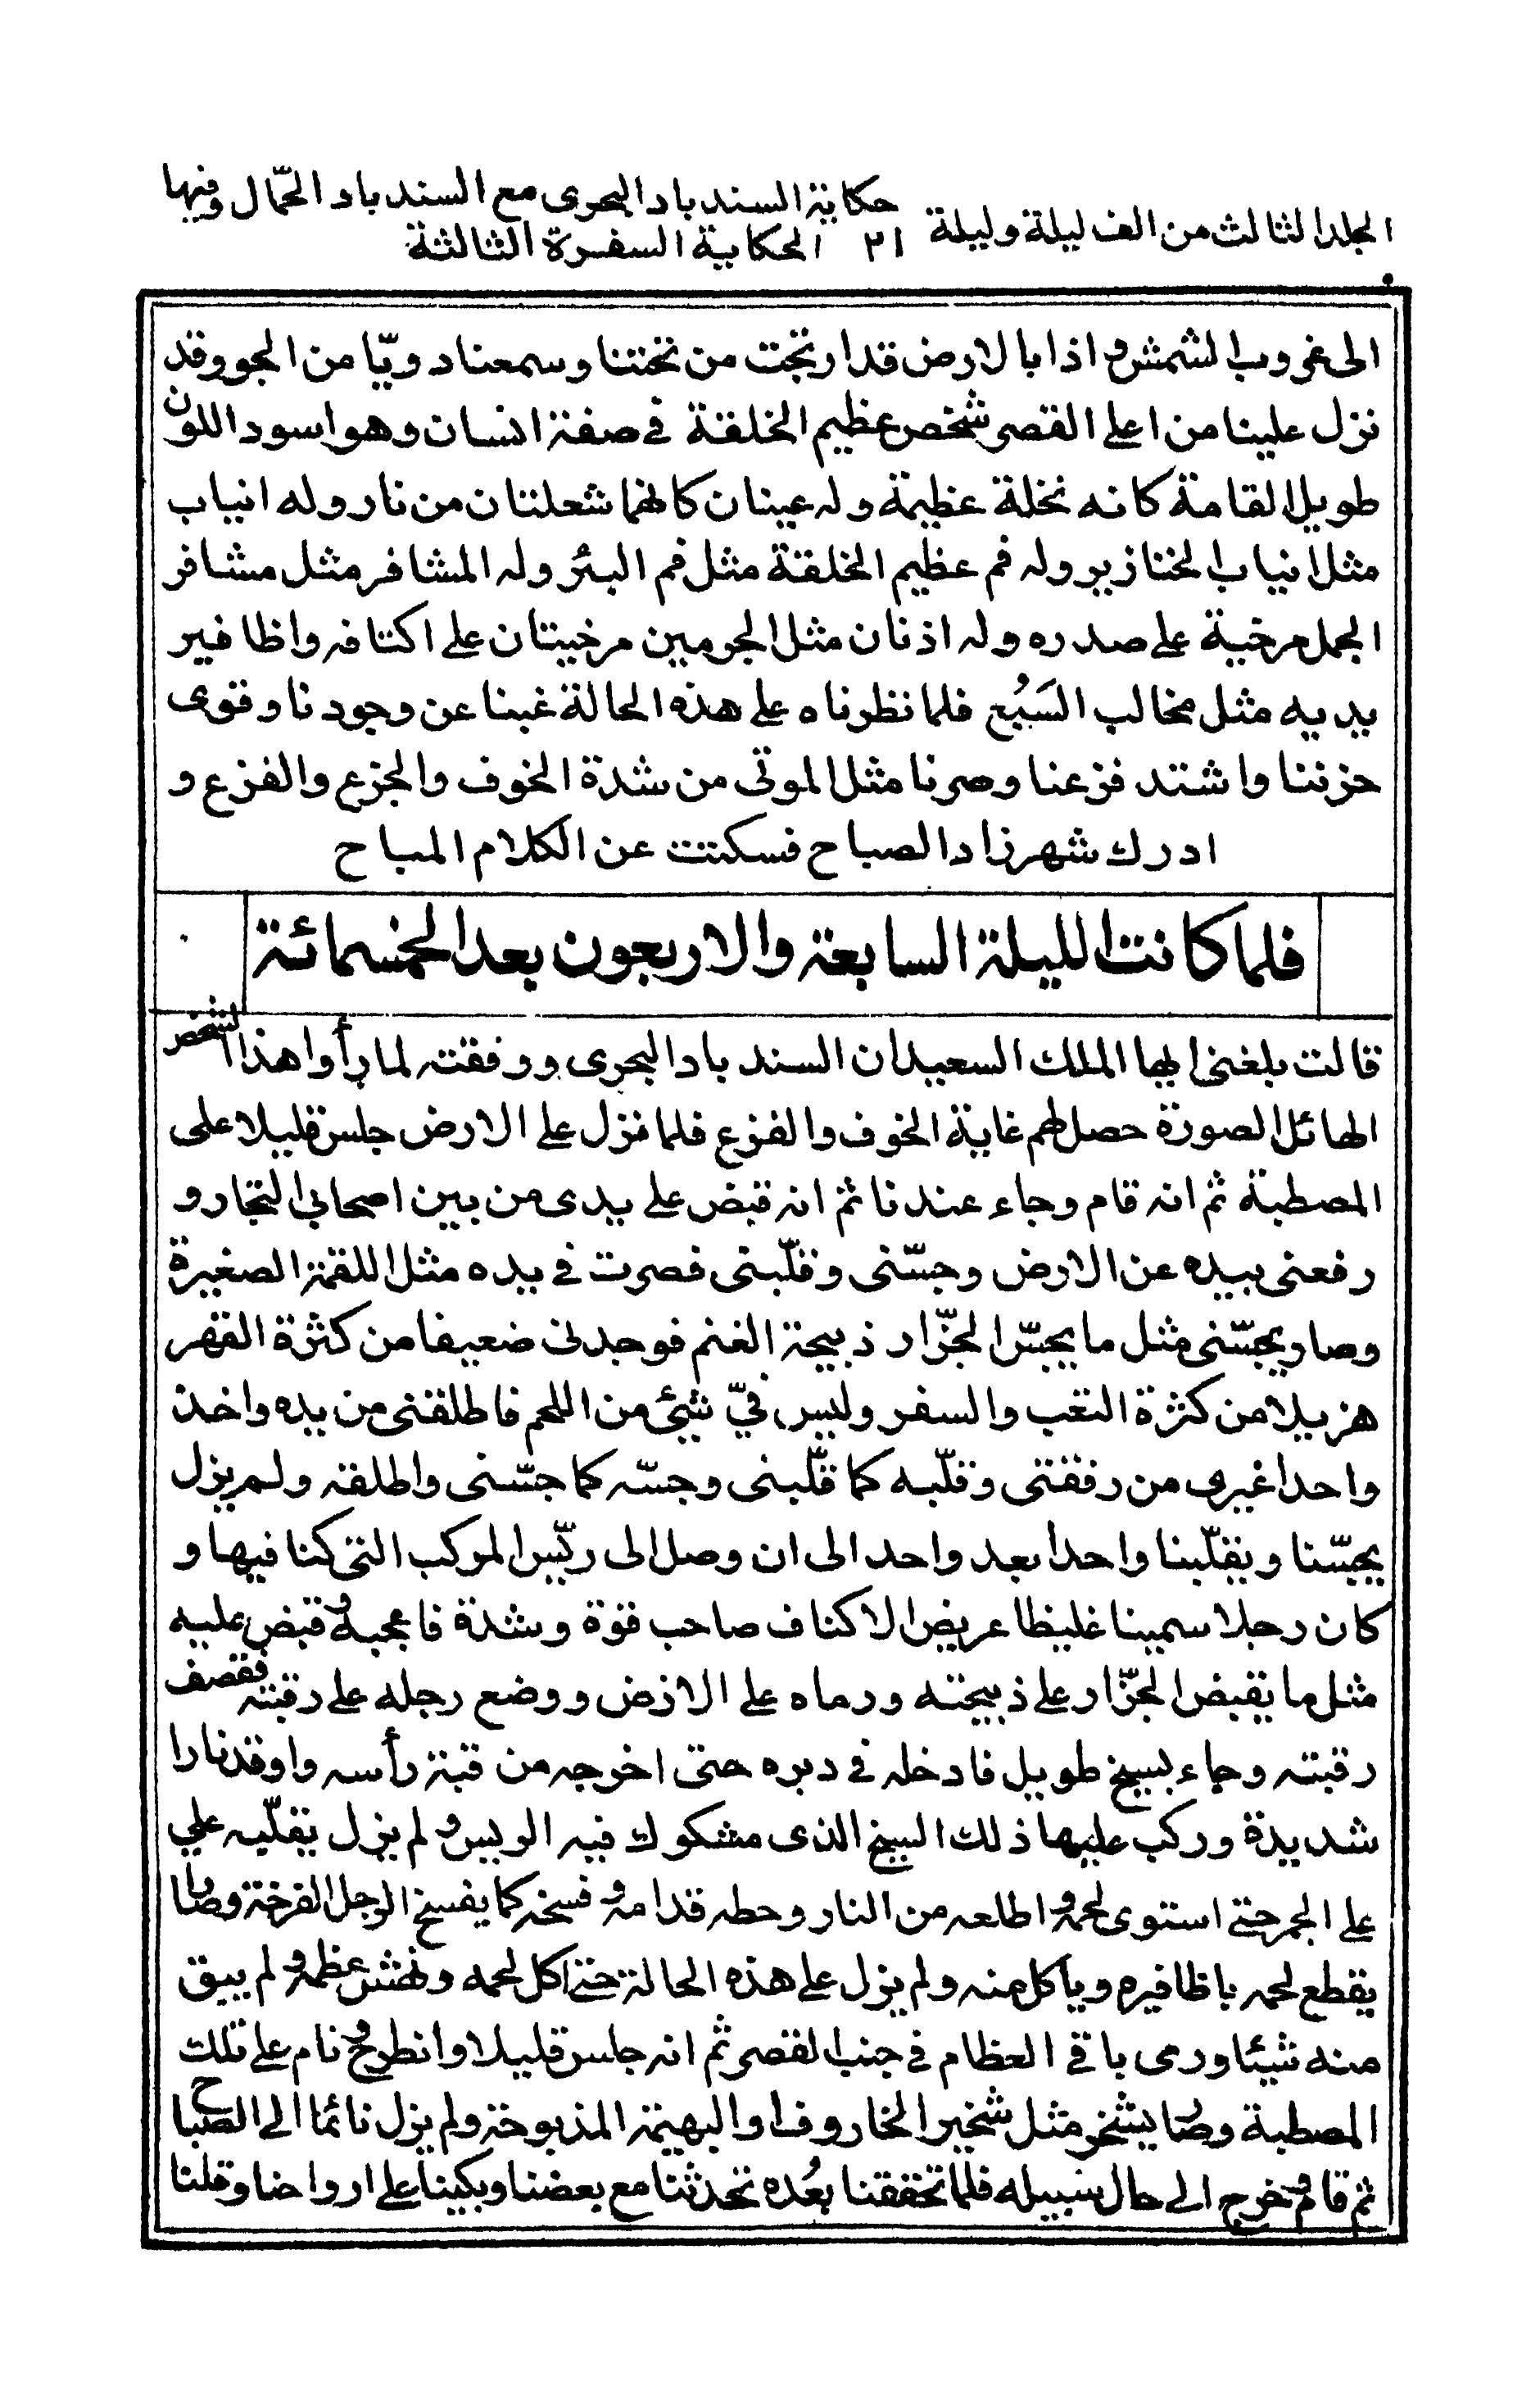 المجلد الثالث من الف ليلة وليلة ٢١ حكاية السندباد البحرى مع السندباد الحمّال وفيها
الحكاية السفرة الثالثة
الى غروب الشمش واذا بالارض قد ارتجت من تختنا وسمعنا دويّا من الجو وقد
نزل علينا من اعلى القصر شخص عظيم الخلقة في صفة انسان وهو اسود اللون
طويل القامة كانه نخلة عظيمة وله عينان كانهما شعلتان من نار وله انياب
مثل انياب الخنازير وله فم عظيم الخلقة مثل فم البئر وله المشافر مثل مشافر
الجمل مرخية على صدره وله اذنان مثل الجرمين مرخيتان على اكتافه واظافير
يديه مثل مخالب السَبُع فلما نظرناه على هذه الحالة غبنا عن وجودنا وقوى
حزننا واشتد فزعنا وصرنا مثل الموتى من شدة الخوف والجزع والفزع و
ادرك شهرزاد الصباح فسكتت عن الكلام المباح
فلما كانت الليلة السابعة والاربعون بعد الخمسمائة
قالت بلغنى ايها الملك السعيد ان السندباد البحرى ورفقته لما رأوا هذا الشخص
الهائل الصورة حصل لهم غاية الخوف والفزع فلما نزل على الارض جلس قليلا على
المصطبة ثم انه قام وجاء عندنا ثم انه قبض على يدى من بين اصحابى التجار و
رفعنى بيده عن الارض وجسّنى وقلّبنى فصرت في يده مثل اللقمة الصغيرة
وصار يجسّنى مثل ما يجسّ الجزّار ذبيحة الغنم فوجدنى ضعيفا من كثرة القهر
هزيلا من كثرة التعب والسفر وليس فيّ شيئ من اللحم فاطلقنى من يده واخذ
واحدا غيرى من رفقتى وقلّبه كما قلّبنى وجسّه كما جسّنى واطلقه ولم يزل
يجسّنا ويقلّبنا واحدا بعد واحد الى ان وصل الى ريّس المركب التى كنا فيها و
كان رجلا سمينا غليظا عريض الاكتاف صاحب قوة وشدة فاعجبه وقبض عليه
مثل ما يقبض الجزّار على ذبيحته ورماه على الارض ووضع رجله على رقبته فقصف
رقبته وجاء بسيخ طويل فادخله في دبره حتى اخرجه من قبة رأسه واوقد نارا
شديدة وركب عليها ذلك السيخ الذى مشكوك فيه الريس ولم يزل يقلّبه علي
على الجمر حتى استوى لحمه واطلعه من النار وحطه قدامه وفسخه كما يفسخ الرجل الفرخة وصار
يقطع لحمه باظافيره ويأكل منه ولم يزل على هذه الحالة حتى اكل لحمه ونهش عظمه ولم يبق
منه شيئا ورمى باقي العظام في جنب القصر ثم انه جلس قليلا وانطرح ونام على تلك
المصطبة وصار يشخر مثل شخير الخاروف او البهيمة المذبوحة ولم يزل نائما الى الصباح
ثم قام وخرج الى حال سبيله فلما تحققنا بعُده تحدثنا مع بعضنا وبكينا على ارواحنا وقلنا